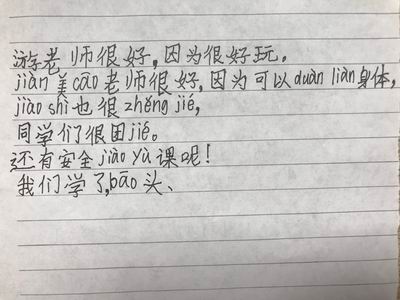 游老师很好,因为很好玩。
jiàn美cāo老师很好,因为可以duàn liàn身体,
jiào shì也很zhěng jié,
同学们很团jié。
还有安全jiào yù课呢!
我们学了,bāo头、